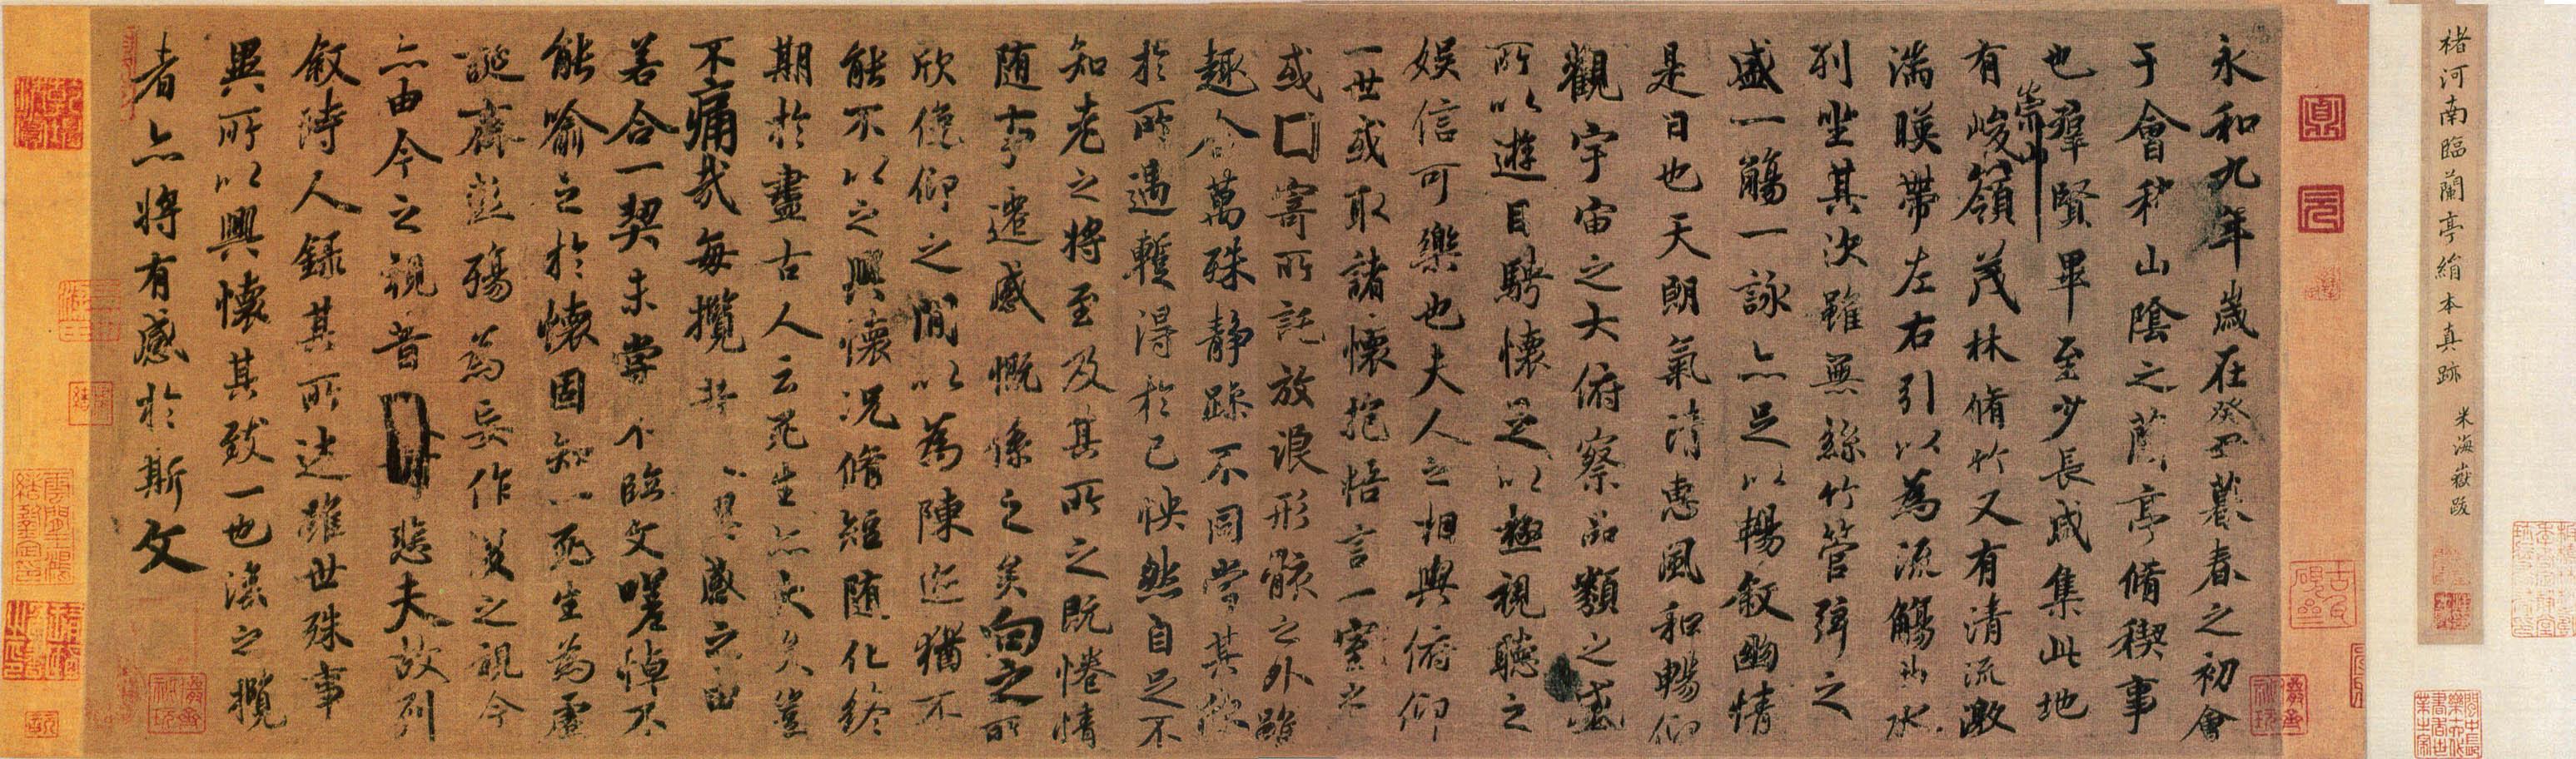 褚河南臨蘭亭絹本真跡 米海嶽跋
永和九年歲在癸丑暮春之初會
于會稽山陰之蘭亭脩稧事
也羣賢畢至少長咸集此地
有崇山峻領茂林脩竹又有清流激
湍暎帶左右引以為流觴曲水
列坐其次雖無絲竹管弦之
盛一觴一詠亦足以暢敘幽情
是日也天朗氣清惠風和暢仰
觀宇宙之大俯察品類之盛
所以遊目騁懷足以極視聽之
娛信可樂也夫人之相與俯仰
一世或取諸懷抱悟言一室之
或囗寄所託放浪形骸之外雖
趣舍萬殊靜躁不同當其欣
於所遇暫得於己怏然自足不
知老之將至及其所之既惓情
随事遷感慨係之矣向之所
欣俛仰之閒以為陳迹猶不
能不以之興懷況脩短隨化終
期於盡古人云死生亦大矣豈
不痛哉每攬昔感之由
若合一契未嘗不臨文嗟悼不
能喻之於懷固知一死生為虛
誕齊彭殤為妄作後之視今
亦由今之視昔悲夫故列
敘時人錄其所述雖世殊事
異所以興懷其致一也後之攬
者亦將有感於斯文